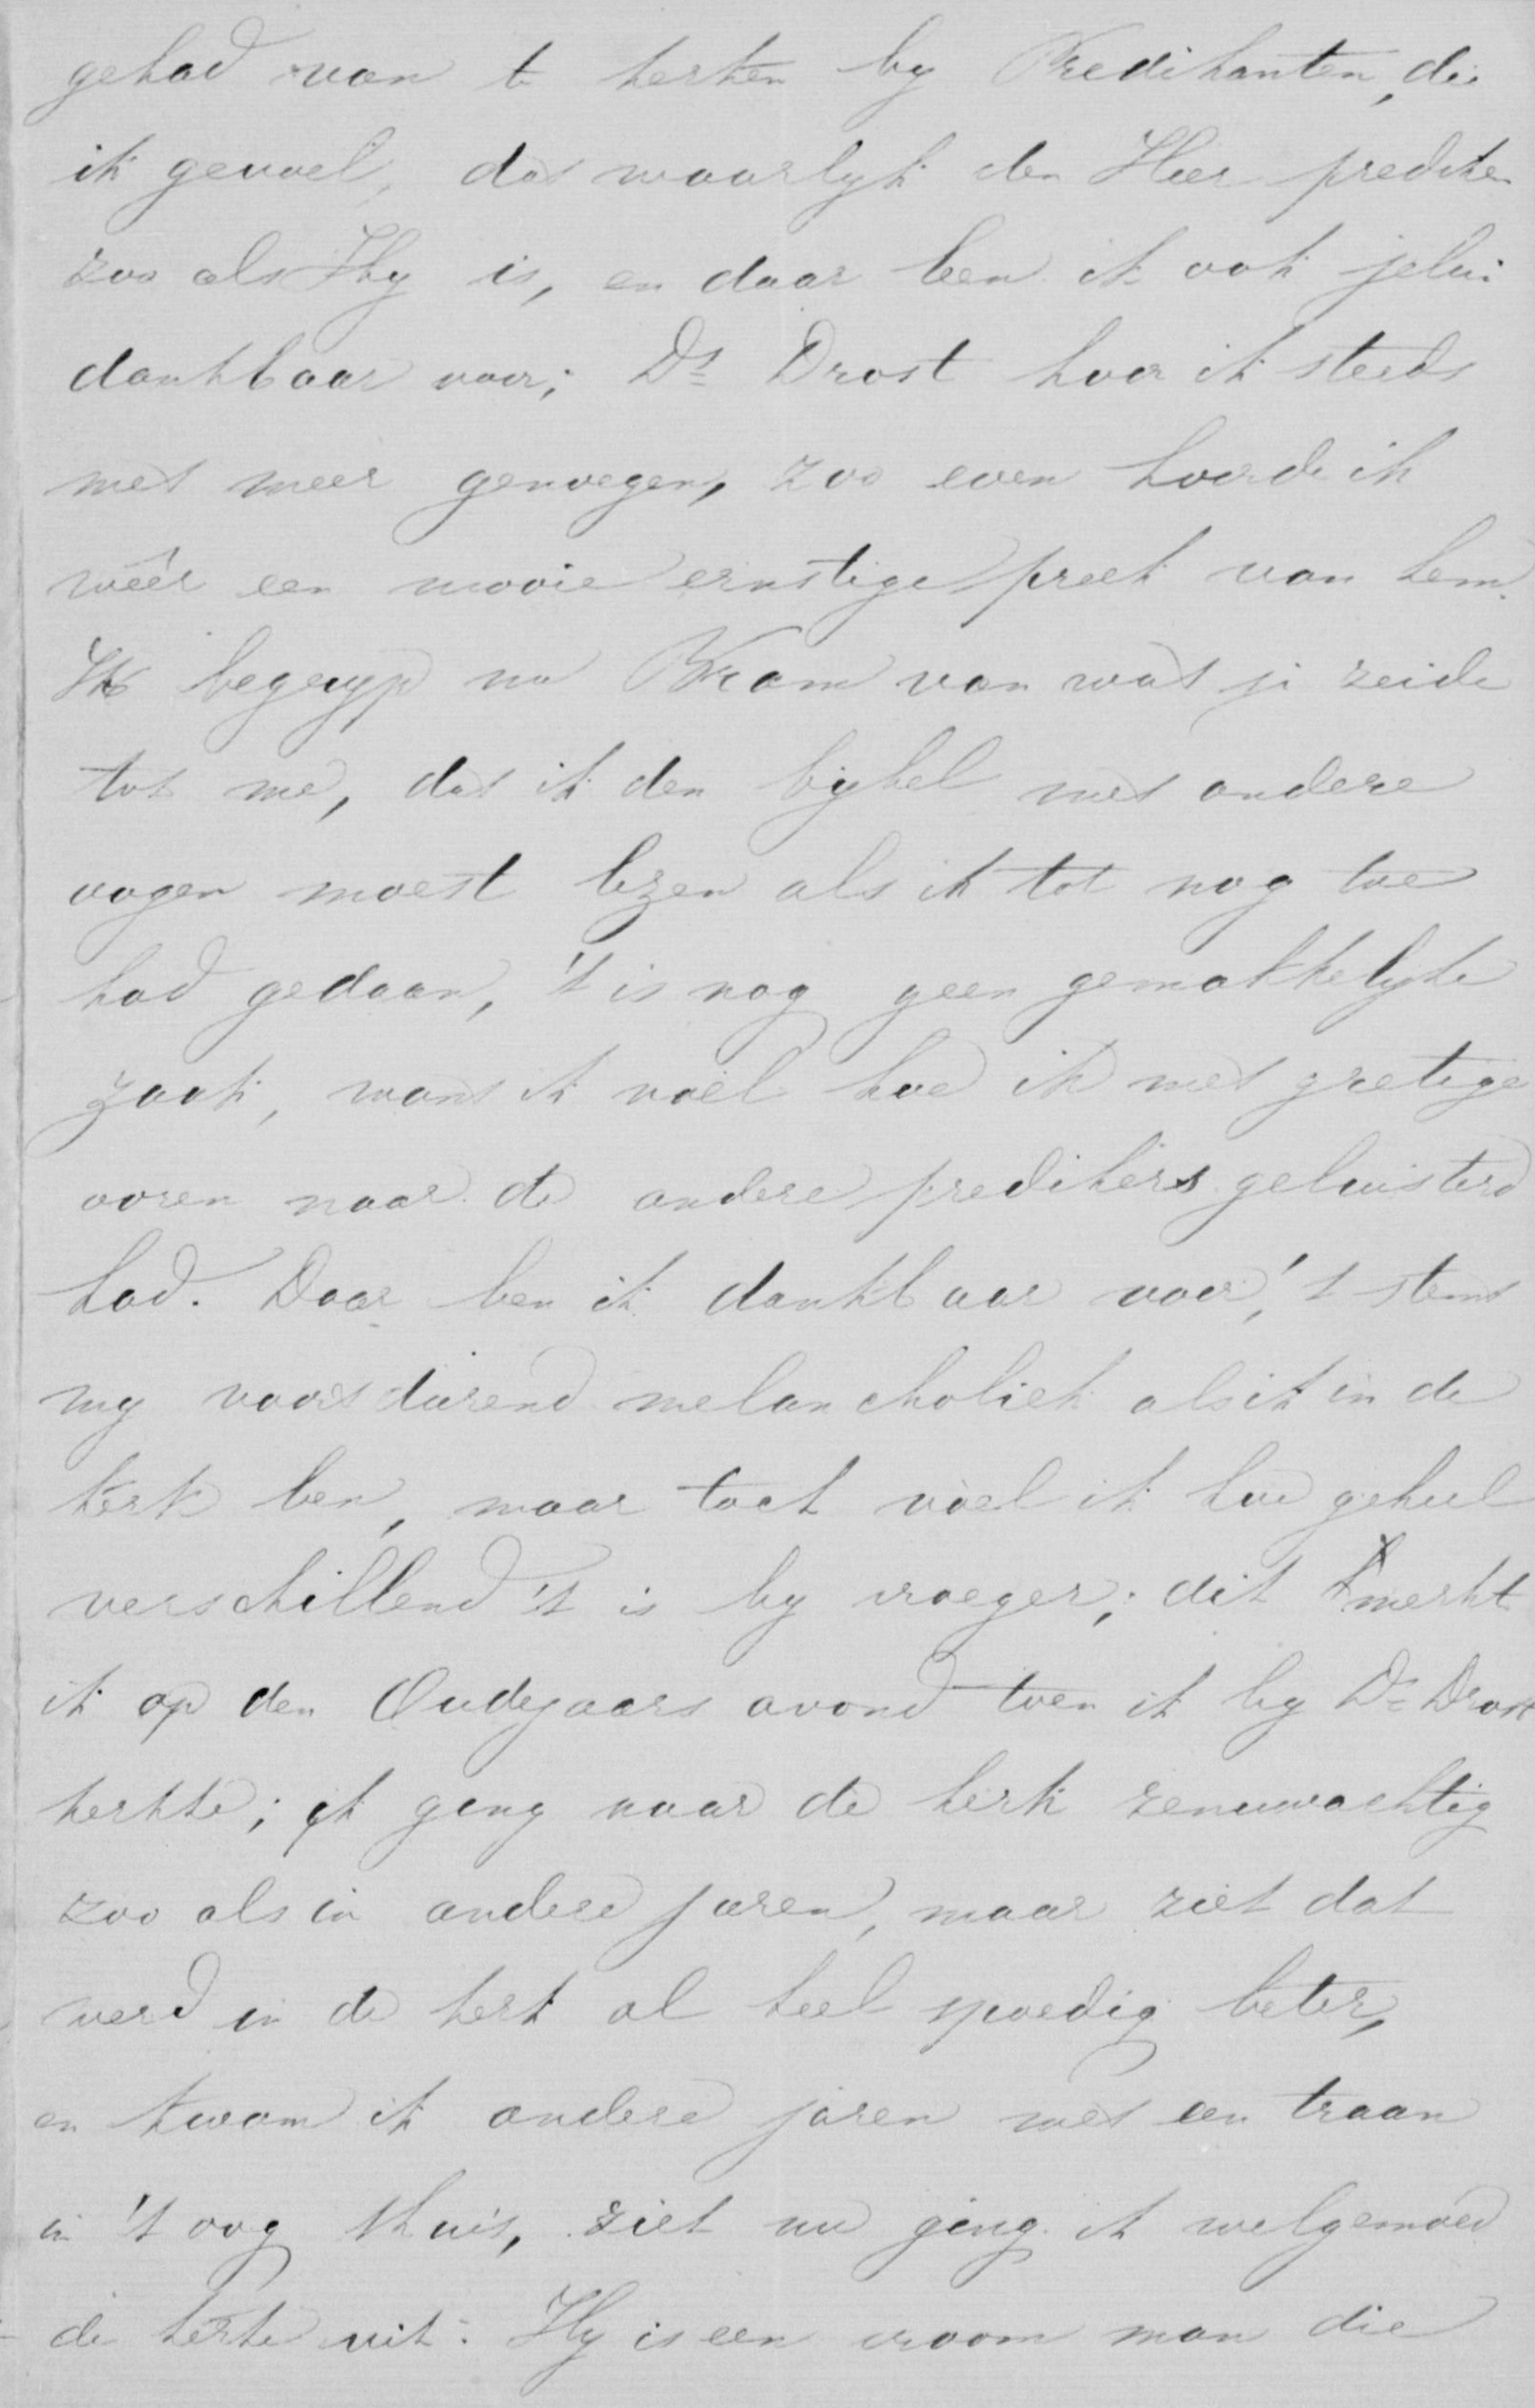 gehad van te kerken by Predikanten, die
ik gevoel, dat waarlyk den Heer prediken
zoo als Hy is, en daar ben ik ook jelui
dankbaar voor; Ds Drost hoor ik steeds
met meer genoegen, zoo even hoorde ik
wéér een mooie ernstige preek van hem.
Ik begryp nu Bram van wat je zeide
tot me, dat ik den bybel met andere
oogen moest lezen als ik tot nog toe
had gedaan, 't is nog geen gemakkelyke
zaak, want ik voel hoe ik met gretige
ooren naar de andere predikers geluisterd
had. Daar ben ik dankbaar voor, 't stemt
my voortdurend melancholiek als ik in de
kerk ben, maar toch voel ik hoe geheel
verschillend 't is by vroeger; dit merkt
ik op den Oudejaars avond toen ik by Ds Drost
kerkte; ik ging naar de kerk zenuwachtig
zoo als in andere jaren, maar ziet dat
werd in de kerk al heel spoedig beter,
en kwam ik andere jaren met een traan
in 't oog thuis, ziet nu ging ik welgemoed
de kerke uit. Hy is een vroom man die